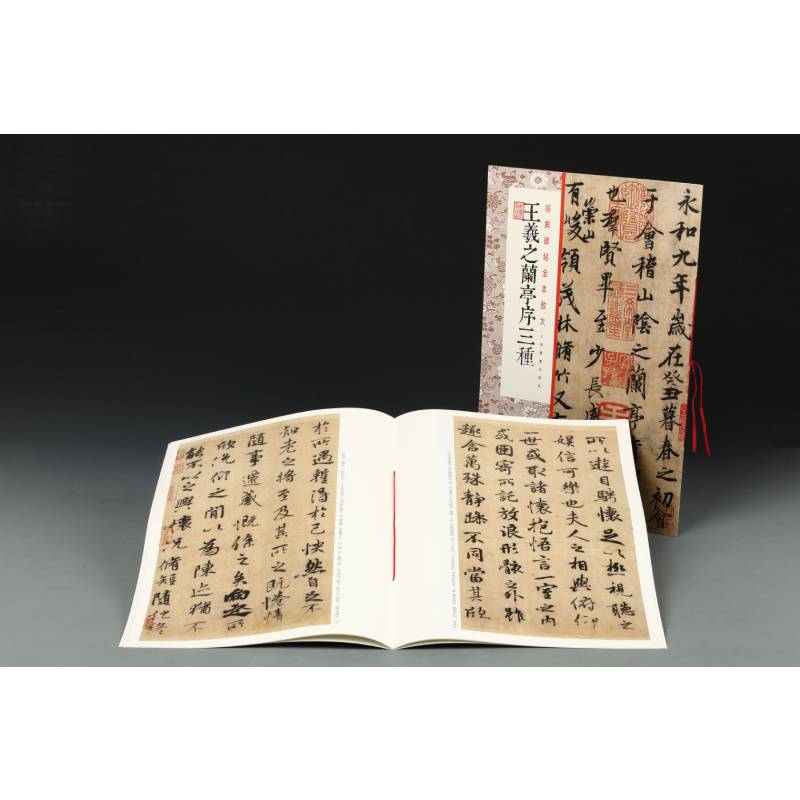 經典碑帖全本放大
王羲之蘭亭序三種
永和九年歲在癸丑暮春之初會
于會稽山陰之蘭亭
也羣賢畢至少長咸
崇山
有峻領茂林脩竹又
所以遊目騁懷足以極視聽之
娛信可樂也夫人之相與俯仰
一世或取諸懷抱悟言一室之內
或因寄所託放浪形骸之外雖
趣舍萬殊靜躁不同當其欣
於所遇蹔得於己怏然自足不
知老之將至及其所之既惓情
隨事遷感慨係之矣向之所
欣俛仰之間以為陳迹猶不
能不以之興懷況脩短隨化終